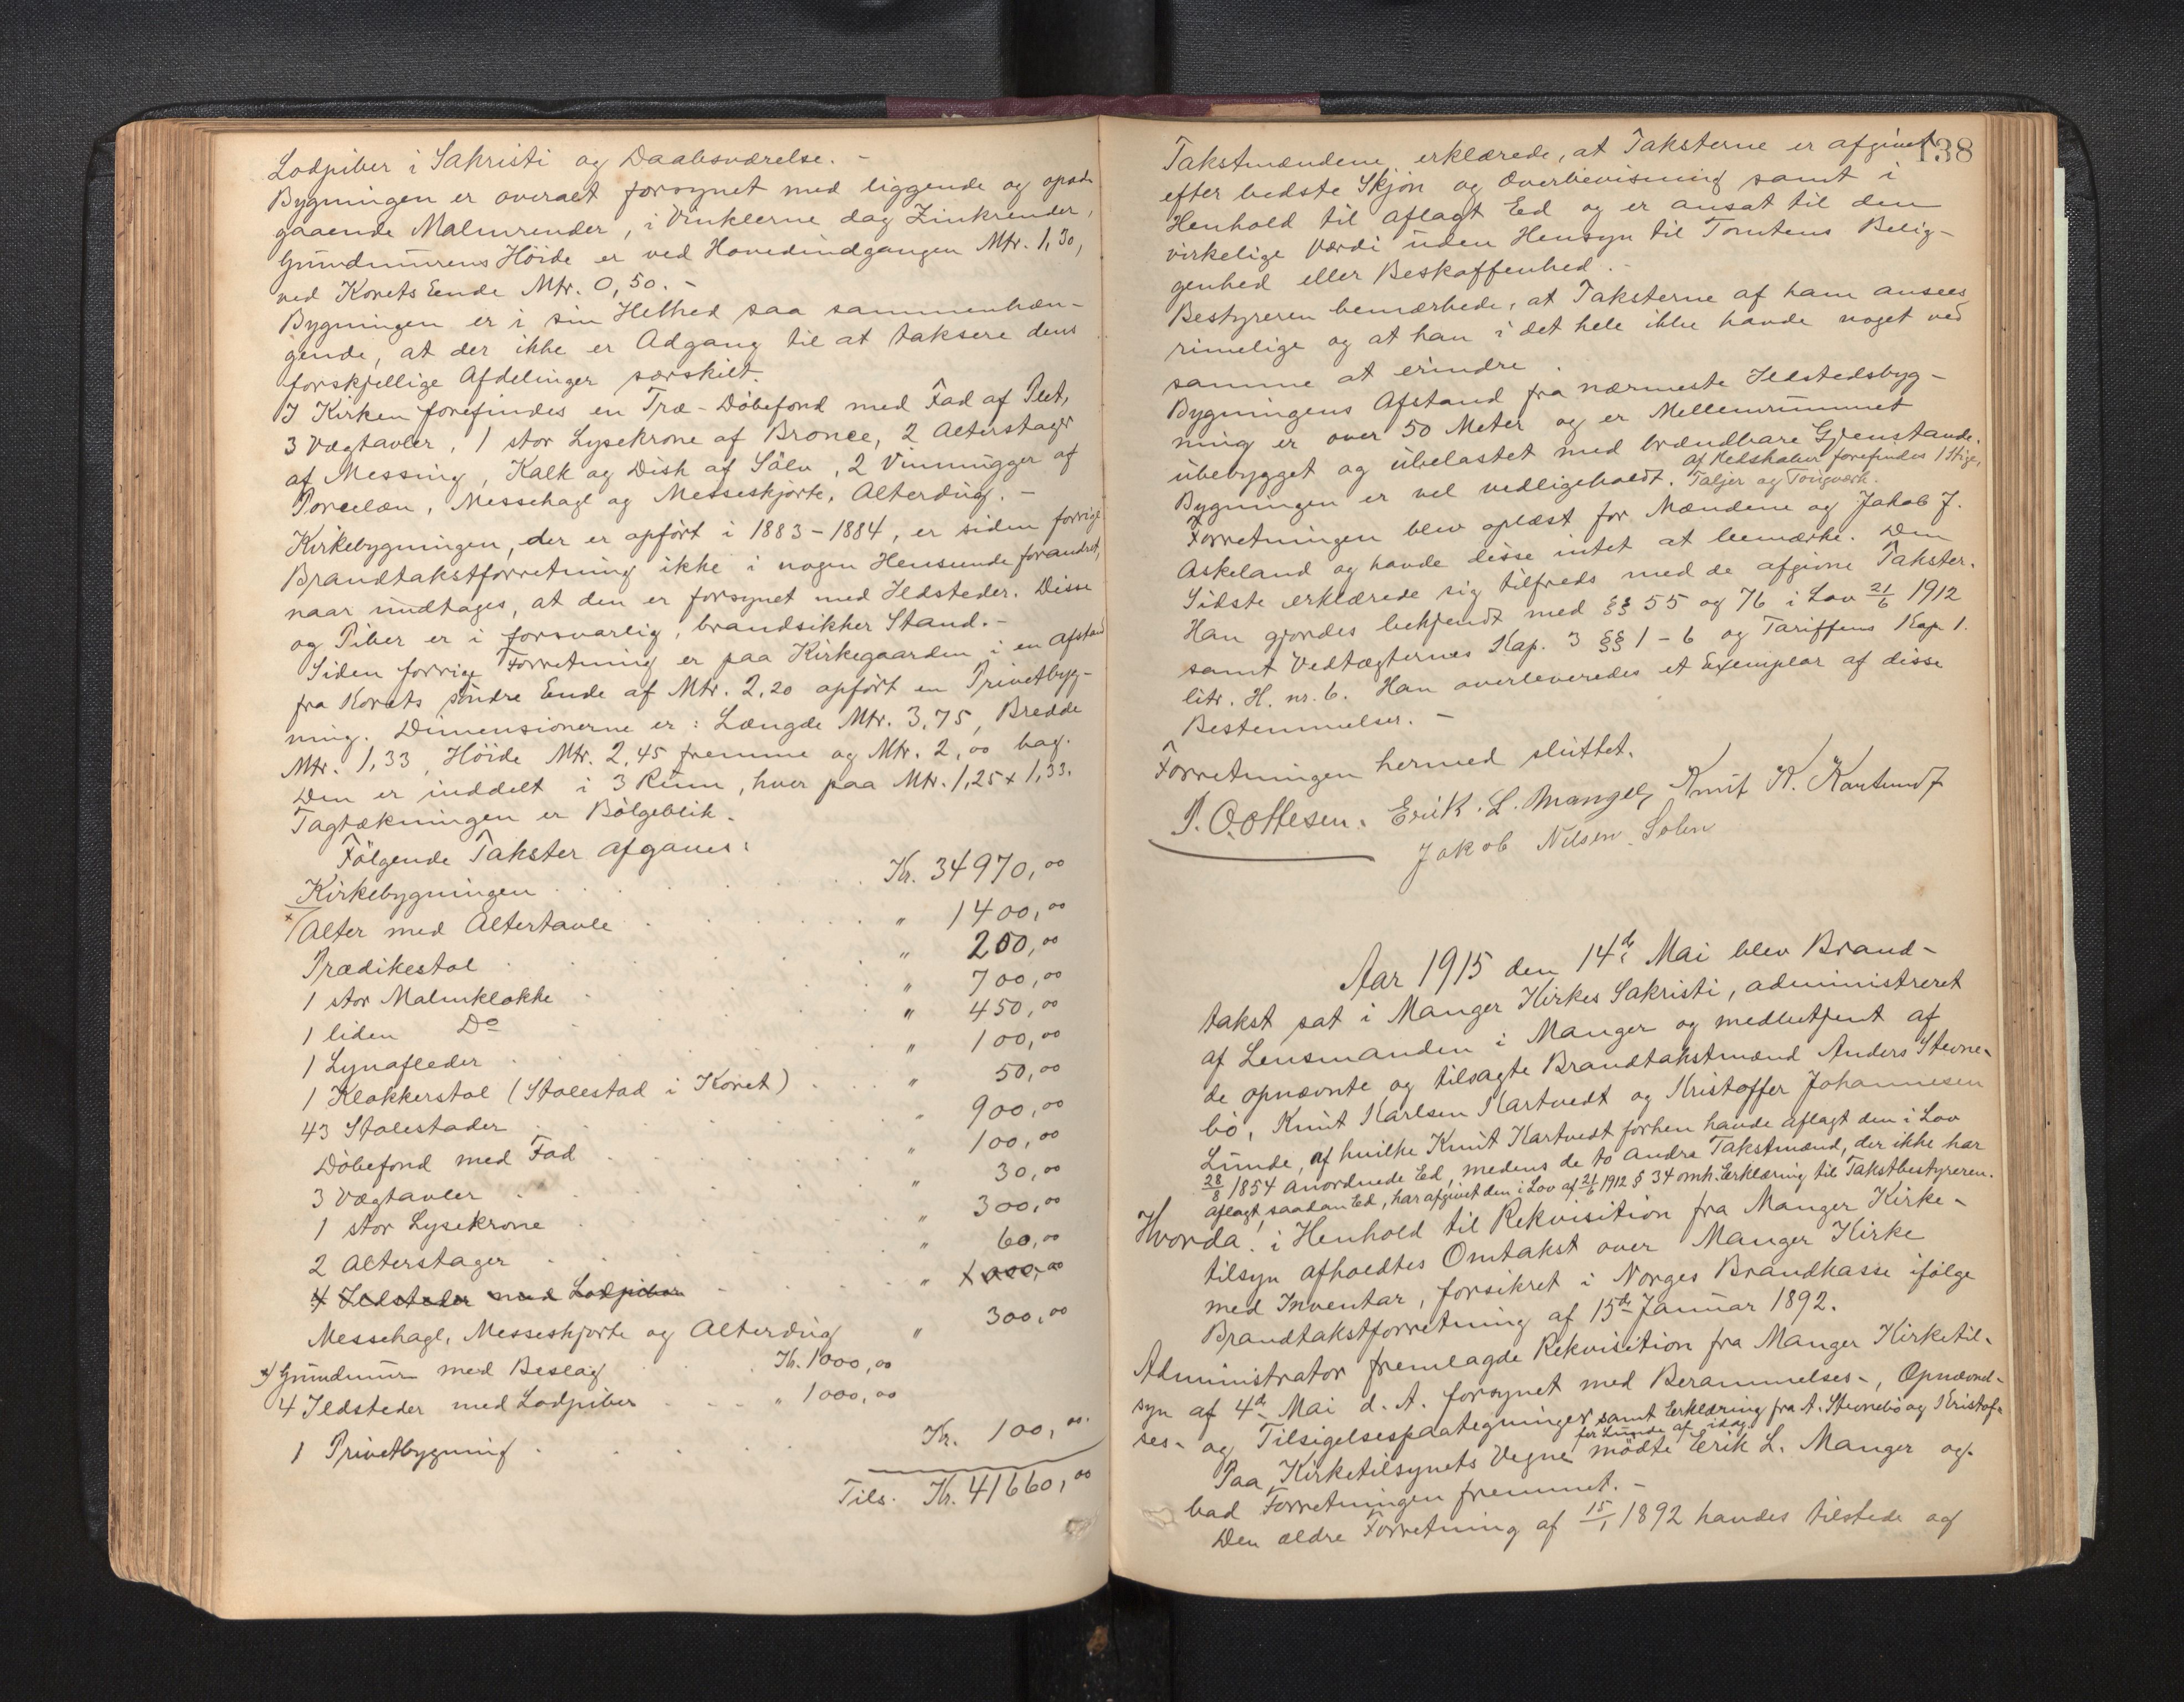 Lodpiber i Sakristi og Daabsværelse. -
Bygningen er overalt forsynet med liggende og opad-
gaaende Malmrender, i Vinklerne dog Zinkrender,
Grundmurens Höide er ved Hovedindgangen Mtr. 1,30,
ved Korets Ende Mtr. 0,50. -
Bygningen er i sin Helhed saa sammenhæn-
gende, at der ikke er Adgang til at taksere dens
forskjellige Afdelinger særskilt.
I Kirken forefindes en Træ-Döbefond med Fad af Plet,
3 Vægtavler, 1 stor Lysekrone af Bronce, 2 Alterstager
af Messing, Kalk og Disk af Sölv, 2 Vinmugger af
Porcelæn, Messehagl og Messeskjorte, Alterdug. -
Kirkebygningen, der er opfört i 1883-1884, er siden forrige
Brandtakstforretning ikke i nogen Henseende forandret,
naar undtages, at den er forsynet med Ildsteder. Disse
og Piber er i forsvarlig, brandsikker Stand. -
Siden forrige Forretning er paa Kirkegaarden i en Afstand
fra Korets söndre Ende af Mtr. 2,20 opfört en Privetbyg-
ning. Dimensionerne er: Længde Mtr. 3,75, Bredde
Mtr. 1,33, Höide Mtr. 2,45 fremme og Mtr. 2,00 bag.
Den er inddelt i 3 Rum, hver paa Mtr. 1,25 x 1,33.
Tagtækningen er Bölgeblik.
Fölgende Takster afgaves:
Kirkebygningen . . . Kr. 34970,00
x) Alter med Altertavle . . . " 1400,00
Prædikestol . . . " 200,00
1 stor Malmklokke . . . " 700,00
1 liden Do . . . " 450,00
1 Lynafleder . . . " 100,00
1 Klokkerstol (Stolestad i Koret) . . . " 50,00
43 Stolestader . . . " 900,00
Döbefond med Fad . . . " 100,00
3 Vægtavler . . . 30,00
1 stor Lysekrone . . . " 300,00
2 Alterstager . . . " 60,00
4 Ildsteder med Lodpiber . . . " 1000,00
Messehagl, Messeskjorte og Alterdug " 300,00
x) Grundmur med Beslag . . . Kr. 1000,00
4 Ildsteder med Lodpiber . . . " 1000,00
1 Privetbygning . . . Kr. 100,00
Tils. Kr. 41660,00
138
Takstmændene erklærede, at Taksterne er afgivet
efter bedste Skjön og Overbevisning samt i
Henhold til aflagt Ed og er ansat til den
virkelige Værdi uden Hensyn til Tomtens Belig-
genhed eller Beskaffenhed. -
Bestyreren bemærkede, at Taksterne af ham ansees
rimelige og at han i det hele ikke havde noget ved
samme at erindre.
Bygningens Afstand fra nærmeste Ildstedsbyg-
ning er over 50 Meter og er Mellemrummet
ubebygget og ubelastet med brændbare Gjenstande.
Af Redskaber forefindes 1 Stige,
Bygningen er vel vedligeholdt. Taljer og Tougværk.
Forretningen blev oplæst for Mændene og Jakob J.
Askeland og havde disse intet at bemærke. Den
Sidste erklærede sig tilfreds med de afgivne Takster.
Han gjordes bekjendt med §§ 55 og 76 i Lov 21/6 1912
samt Vedtægternes Kap. 3 §§ 1-6 og Tariffens Kap 1.
litr. H. nr. 6. Han overleveredes et Exemplar af disse
Bestemmelser. -
Forretningen hermed sluttet.
P. Oottesen. Erik. L. Manger, Knut K. Kartvedt
Jakob Nilsen
Aar 1915 den 14de Mai blev Brand-
takst sat i Manger Kirkes Sakristi, administreret
af Lensmanden i Manger og medbetjent af
de opnævnte og tilsagte Brandtakstmænd Anders Stevne-
bö, Knut Karlsen Kartvedt og Kristoffer Johannesen
Lunde, af hvilke Knut Kartvedt forhen havde aflagt den i Lov
28/8 1854 anordnede Ed, medens de to andre Takstmænd, der ikke har
aflagt saadan Ed, har afgivet den i Lov af 21/6 1912 § 34 omh. Erklæring til Takstbestyreren.
Hvorda: i Henhold til Rekvisition fra Manger Kirke-
tilsyn afholdtes Omtakst over Manger Kirke
med Inventar, forsikret i Norges Brandkasse ifölge
Brandtakstforretning af 15de Januar 1892.
Administrator fremlagde Rekvisition fra Manger Kirketil-
syn af 4de Mai d. A. forsynet med Berammelses-, Opnævnel-
ses- og Tilsigelsespaategninger samt Erklæring fra A. Stevnebö og Kristof-
fer Lunde af idag.
Paa Kirketilsynets Vegne mödte Erik L. Manger og
bad Forretningen fremmet. -
Den ældre Forretning af 15/1 1892 havdes tilstede og